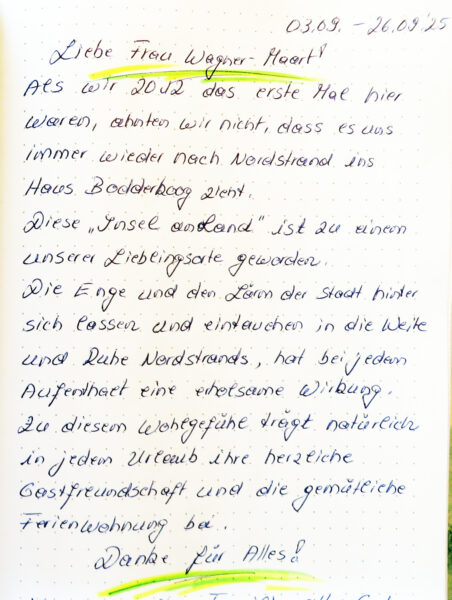 03.09. - 26.09.'25
Liebe Frau Wagner-Maart!
Als wir 2012 das erste Mal hier
waren, ahnten wir nicht, dass es uns
immer wieder nach Nordstrand ins
Haus Bodderboog zieht.
Diese „Insel an Land" ist zu einem
unserer Lieblingsorte geworden.
Die Enge und den Lärm der Stadt hinter
sich lassen und eintauchen in die Weite
und Ruhe Nordstrands, hat bei jedem
Aufenthalt eine erholsame Wirkung.
Zu diesem Wohlgefühl trägt natürlich
in jedem Urlaub ihre herzliche
Gastfreundschaft und die gemütliche
Ferienwohnung bei..
Danke für Alles!